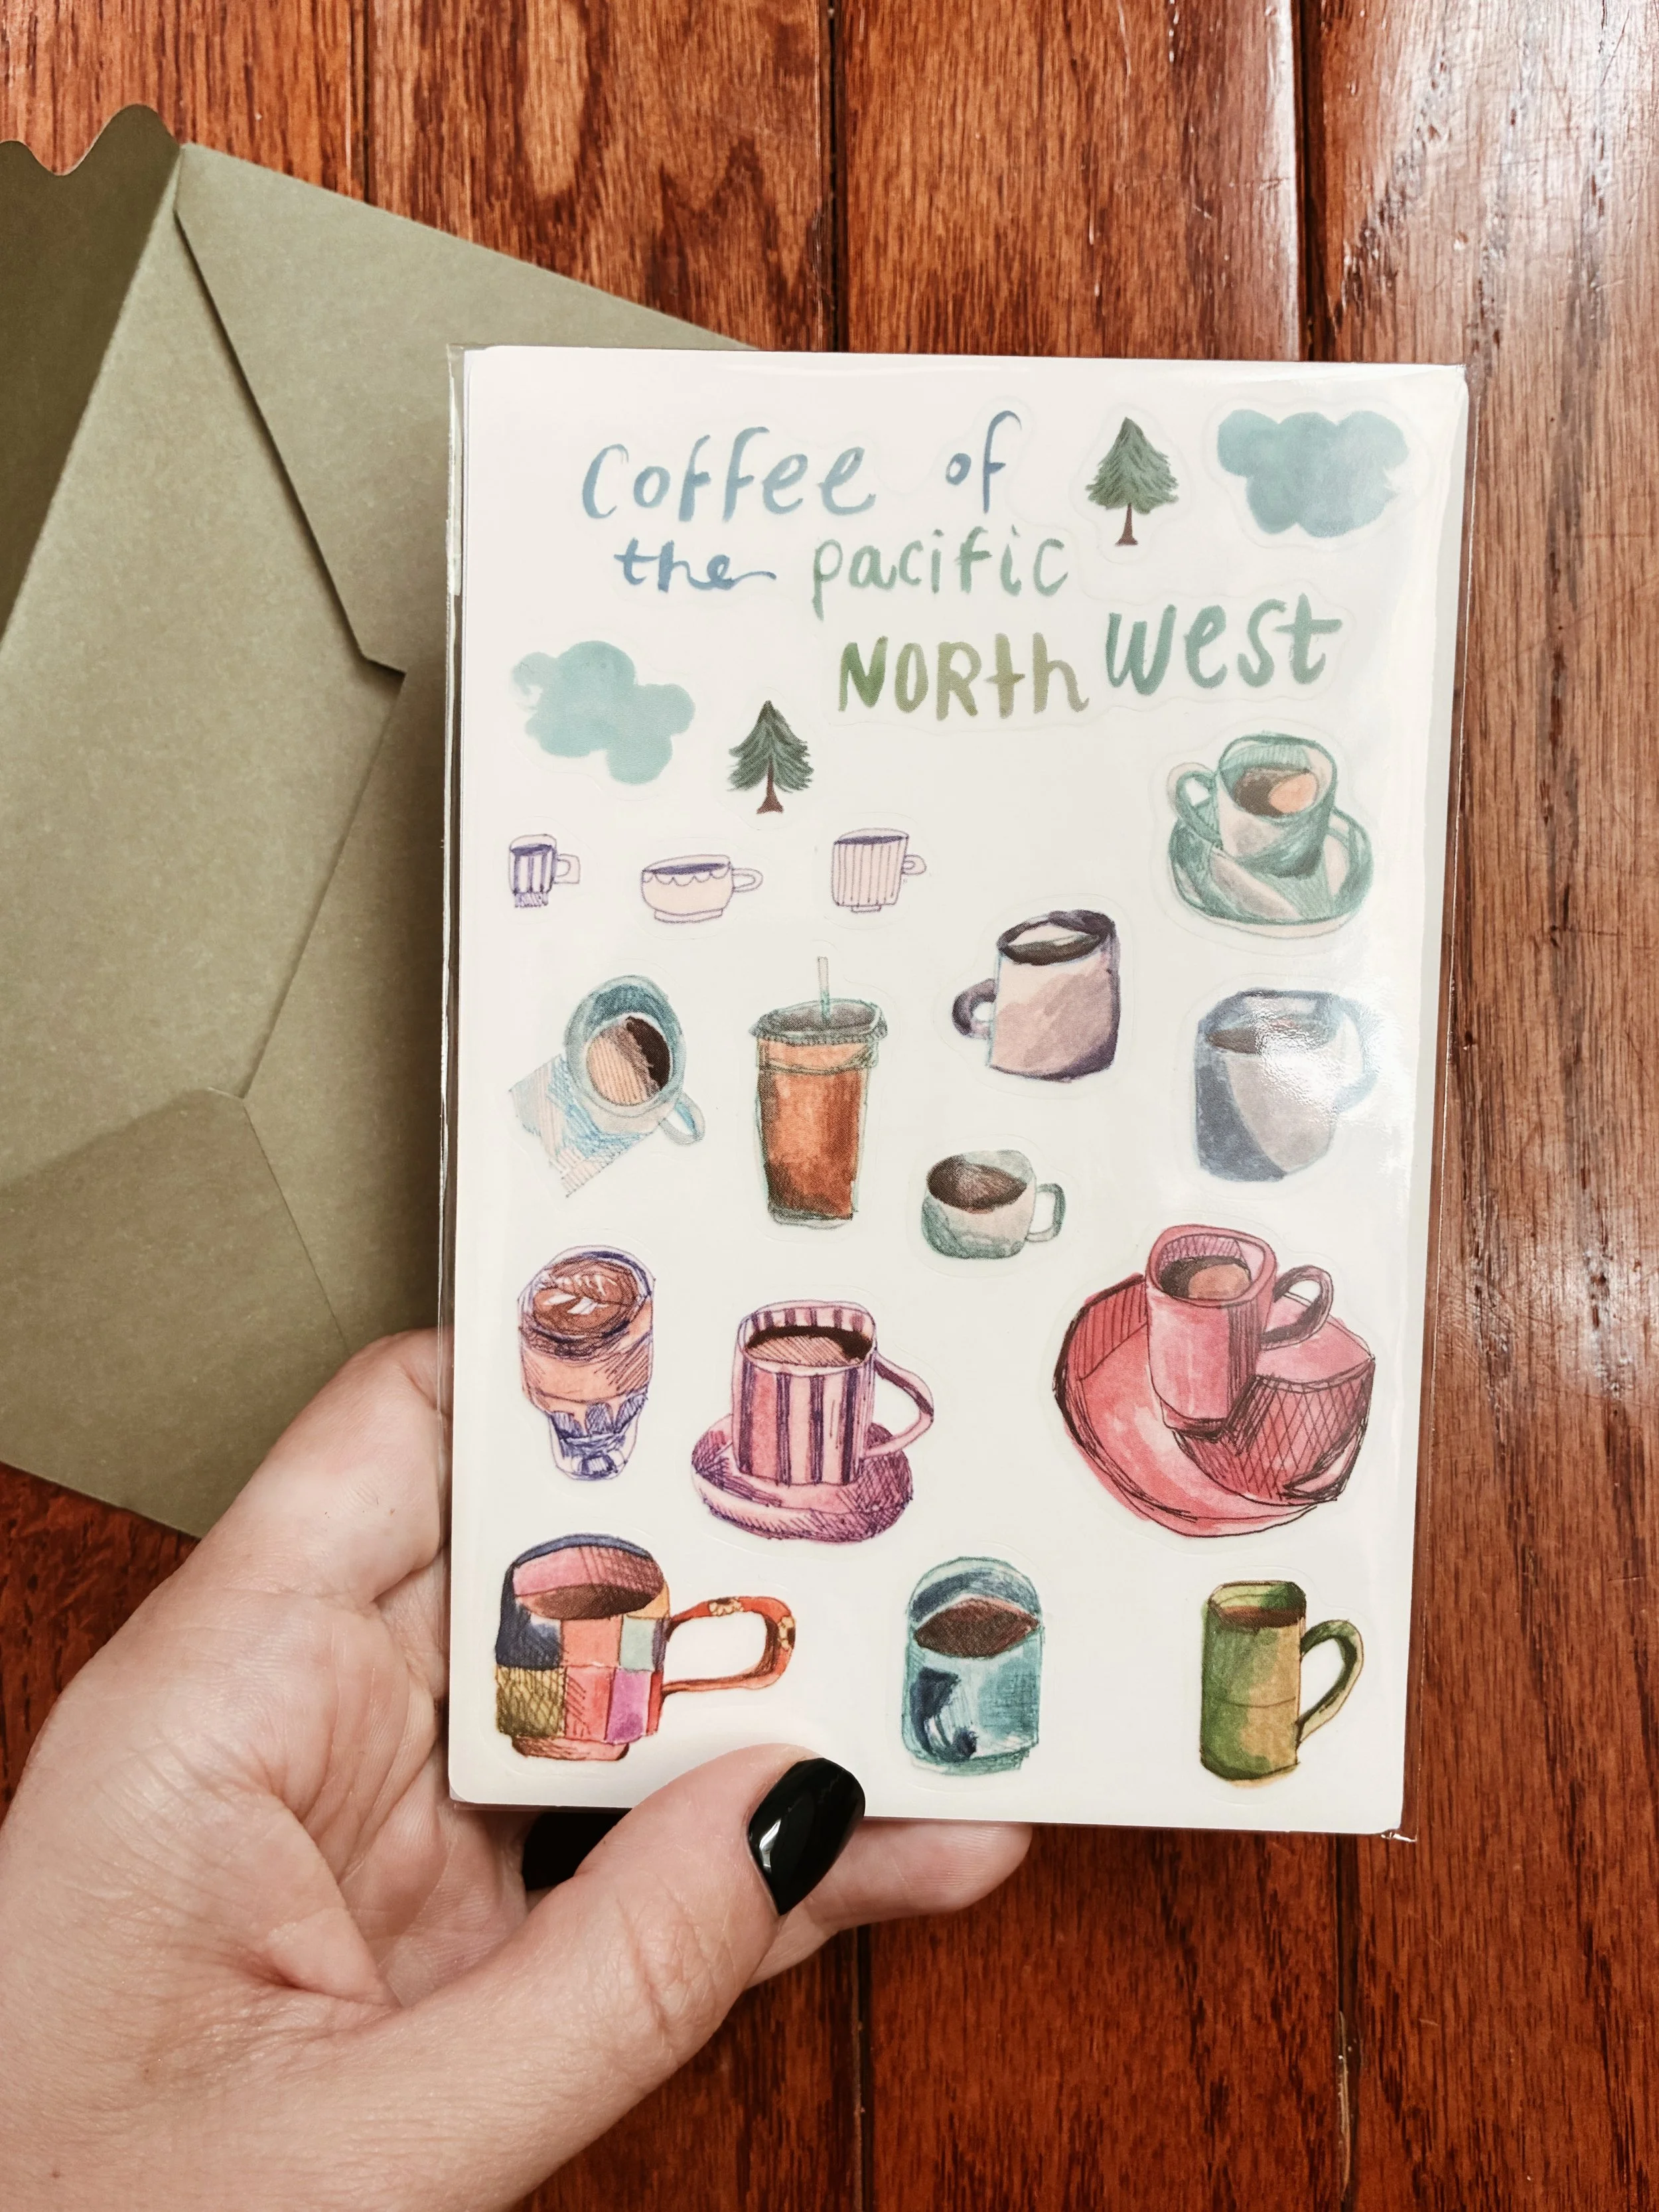 Coffee of
the pacific
NORth west